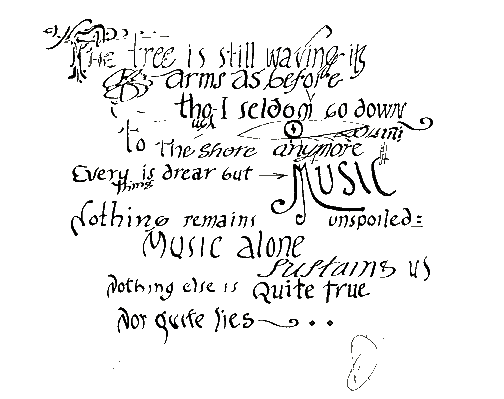 The tree is still waving its
arms as before
tho I seldom go down
to the shore anymore
Every thing is drear but → MUSIC
Nothing remains unspoiled:
Music alone
sustains us
Nothing else is Quite true
Nor quite lies